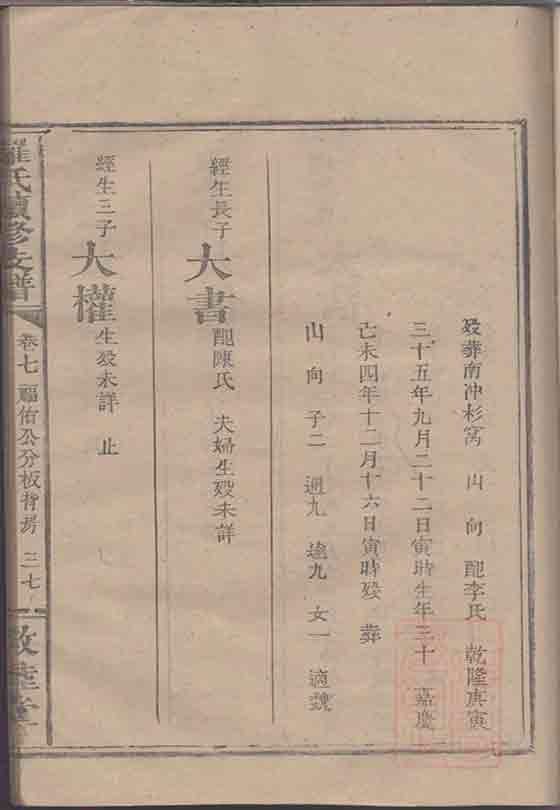 歿葬南沖杉窩 山 向 配李氏 乾隆庚寅
三十五年九月二十二日寅時生年三十 嘉慶
己未四年十二月十六日寅時歿 葬
山 向 子二 週九 遠九 女一 適魏
經生長子 大書 配陳氏 夫婦生歿未詳
經生三子 大權 生歿未詳 止
羅氏續修支譜 卷七 福佑公分板背房 三七 敦睦堂